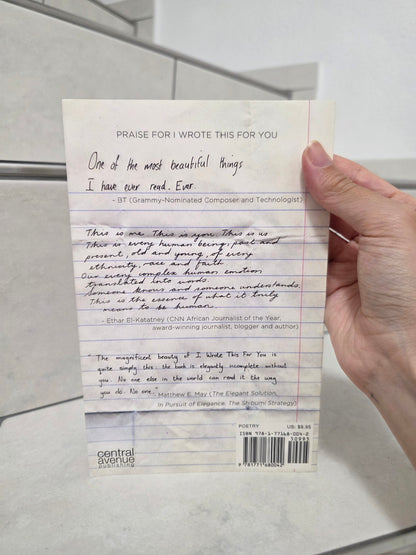 PRAISE FOR I WROTE THIS FOR YOU
One of the most beautiful things
I have ever read. Ever.
- BT (Grammy-Nominated Composer and Technologist)
This is me. This is you. This is us.
This is every human being, past and
present, old and young, of every
ethnicity, race and faith.
Our every complex human emotion
translated into words.
Someone knows and someone understands.
This is the essence of what it truly
means to be human.
- Ethar El-Katatney (CNN African Journalist of the Year,
award-winning journalist, blogger and author)
"The magnificent beauty of I Wrote This For You is
quite simply this: the book is elegantly incomplete without
you. No one else in the world can read it the way
you do. No one."
- Matthew E. May (The Elegant Solution,
In Pursuit of Elegance, The Shibumi Strategy)
central
avenue
publishing
POETRY US: $9.95
ISBN 978-1-77168-004-2
50995
9 781771 680042